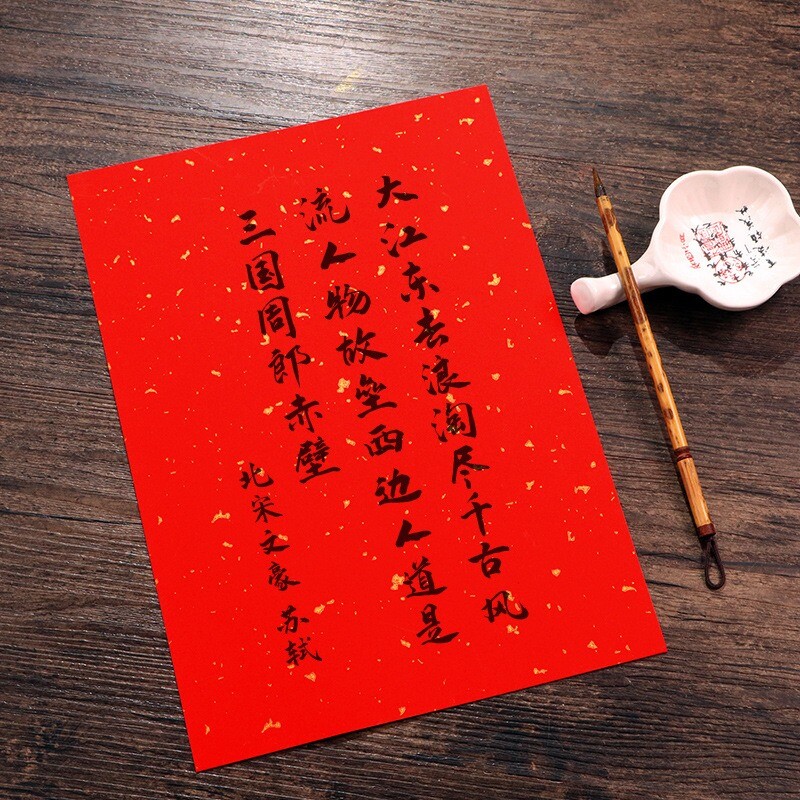 大江东去浪淘尽千古风
流人物故垒西边人道是
三国周郎赤壁
北宋文豪苏轼